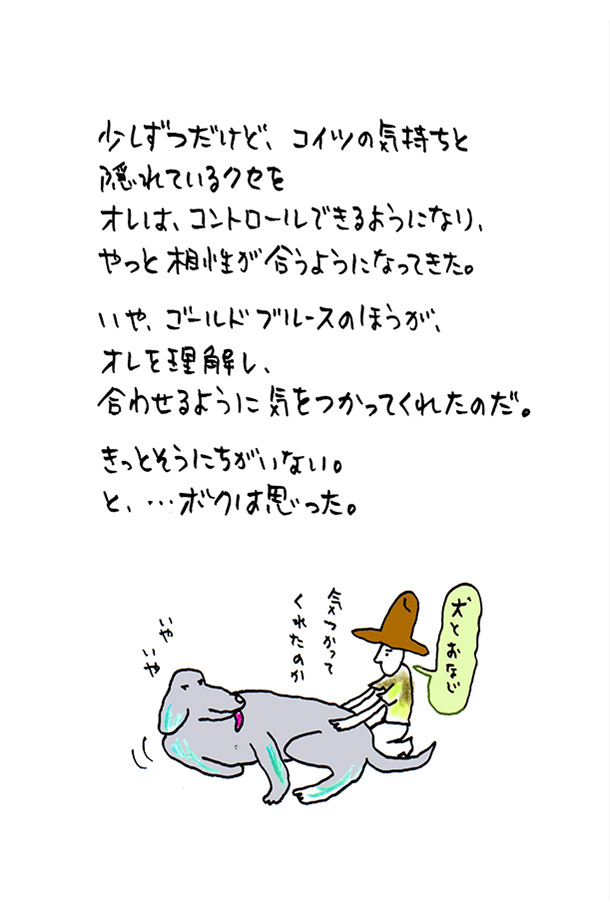 少しずつだけど、コイツの気持ちと
隠れているクセを
オレは、コントロールできるようになり、
やっと相性が合うようになってきた。
いや、ゴールドブルースのほうが、
オレを理解し、
合わせるように気をつかってくれたのだ。
きっとそうにちがいない。
と、…ボクは思った。
犬とおなじ
気つかって
くれたのか
いや
いや